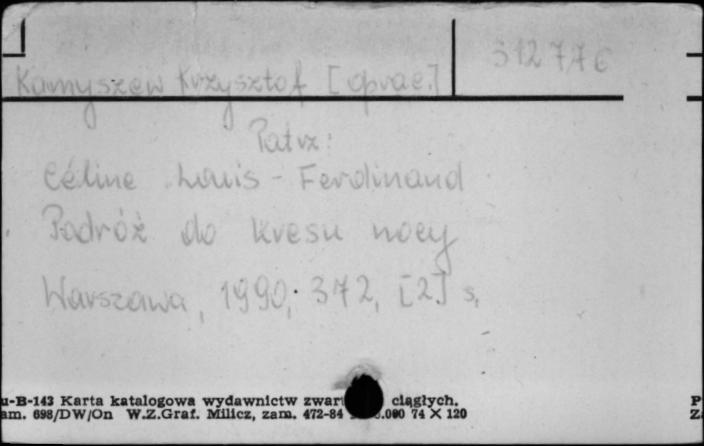 312776
Kamyszew Krzysztof [oprac.]
Patrz:
Céline Louis - Ferdinand
Podróż do kresu nocy
Warszawa, 1990; 372, [2] s,
u-B-143 Karta katalogowa wydawnictw zwar ciągłych.
am. 698/DW/On W.Z.Graf. Milicz, zam. 472-84 .000 74 X 120
P
Z